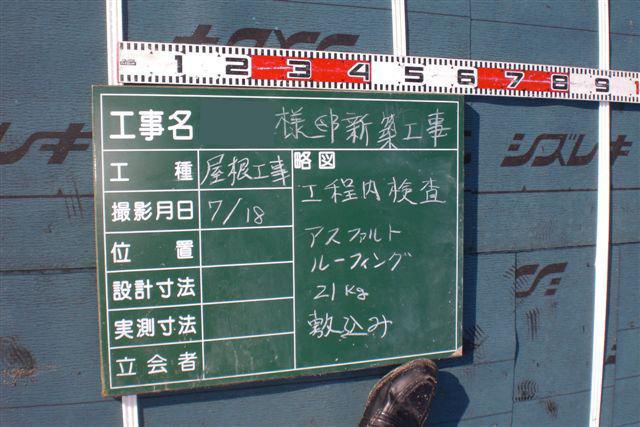 1 2 3 4 5 6 7 8 9 1
工事名 様邸新築工事
工種 屋根工事
撮影月日 7/18
位置
設計寸法
実測寸法
立会者
略図
工程内検査
アスファルト
ルーフィング
21kg
敷込み
シズレキ